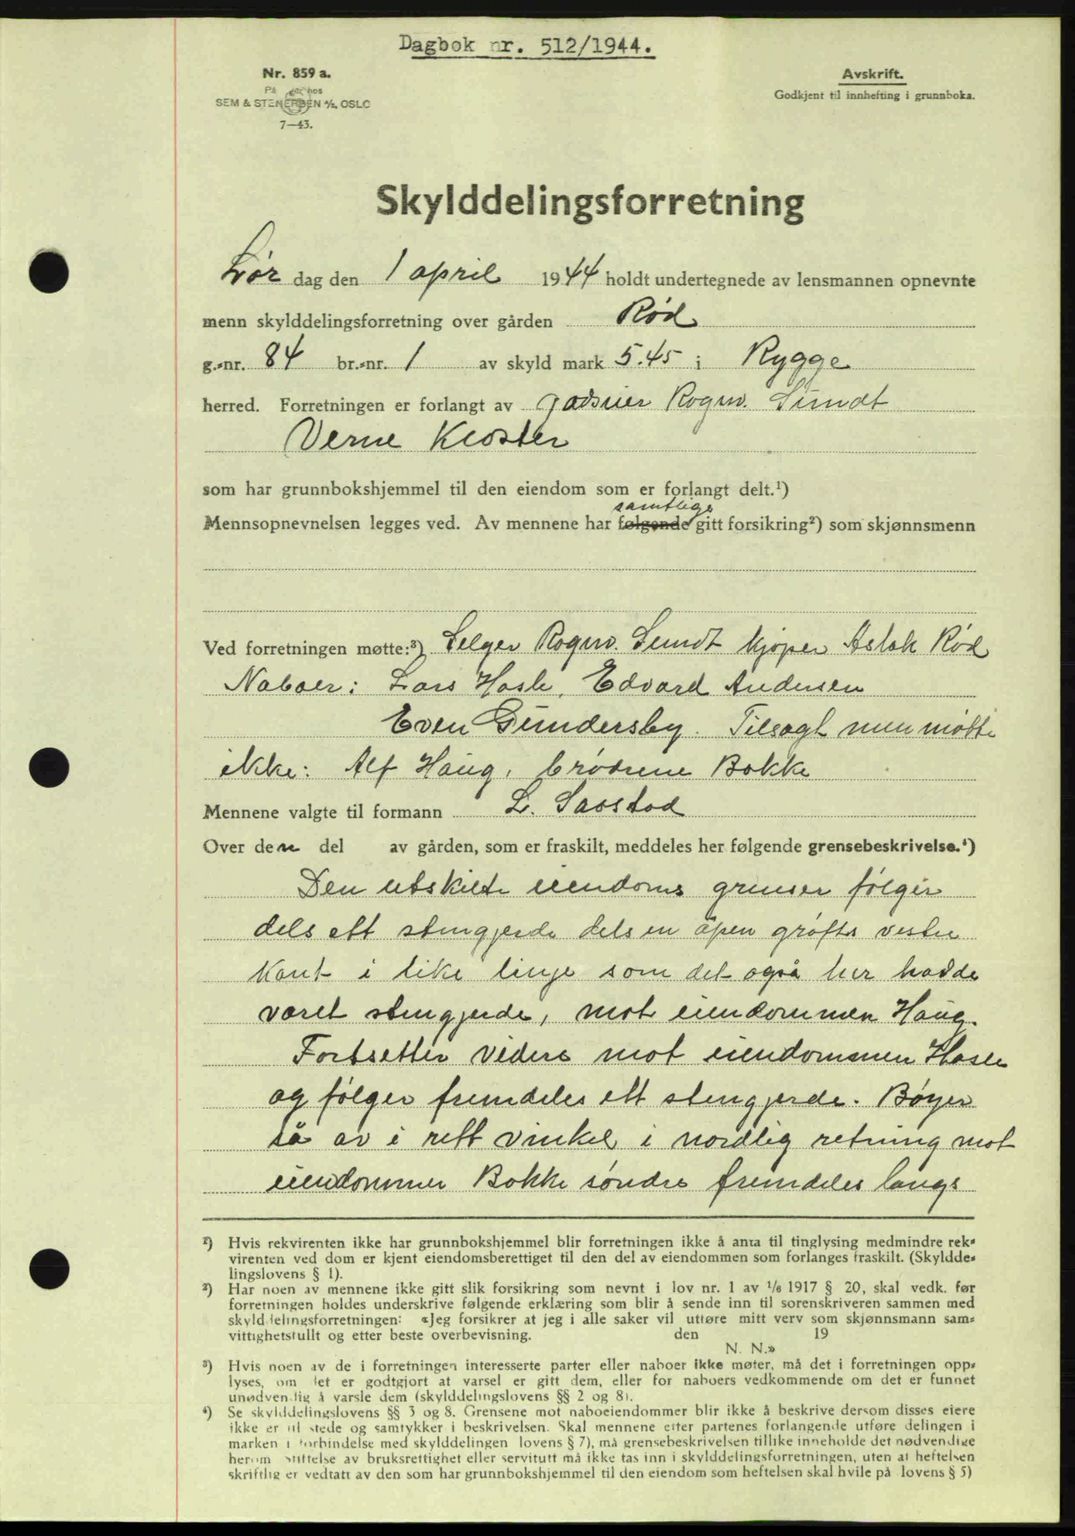 Dagbok nr. 512/1944.
Nr. 859 a.
På lager hos
SEM & STENERSEN A/S, OSLO
7—43.
Avskrift.
Godkjent til innhefting i grunnboka.
Skylddelingsforretning
Lør dag den 1 april 1944 holdt undertegnede av lensmannen opnevnte
menn skylddelingsforretning over gården Rød
g.-nr. 84 br.-nr. 1 av skyld mark 5.45 i Rygge
herred. Forretningen er forlangt av godseier Rognv. Sundt
Verne Kloster
som har grunnbokshjemmel til den eiendom som er forlangt delt.¹)
samtlige
Mennsopnevnelsen legges ved. Av mennene har følgende gitt forsikring²) som skjønnsmenn
Ved forretningen møtte:³) Selger Rognv. Sundt kjøper Aslak Rød
Naboer: Lars Hasle, Edvard Andersen
Even Gundersby. Tilsagt men møtte
ikke: Alf Haug, brødrene Bakke
Mennene valgte til formann L. Saastad
Over den del av gården, som er fraskilt, meddeles her følgende grensebeskrivelse.⁴)
Den utskilte eiendoms grenser følger
dels ett stengjerde dels en åpen grøfts vestre
kant i like linje som det også her hadde
været stengjerde, mot eiendommen Haug.
Fortsetter videre mot eiendommen Hasle
og følger fremdeles ett stengjerde. Bøyer
så av i rett vinkel i nordlig retning mot
eiendommen Bakke søndre fremdeles langs
¹) Hvis rekvirenten ikke har grunnbokshjemmel blir forretningen ikke å anta til tinglysing medmindre rek-
virenten ved dom er kjent eiendomsberettiget til den del av eiendommen som forlanges fraskilt. (Skyldde-
lingslovens § 1).
²) Har noen av mennene ikke gitt slik forsikring som nevnt i lov nr. 1 av 1/6 1917 § 20, skal vedk. før
forretningen holdes underskrive følgende erklæring som blir å sende inn til sorenskriveren sammen med
skylddelingsforretningen: «Jeg forsikrer at jeg i alle saker vil utføre mitt verv som skjønnsmann sam-
vittighetsfullt og etter beste overbevisning. den 19
N. N.»
³) Hvis noen av de i forretningen interesserte parter eller naboer ikke møter, må det i forretningen opp-
lyses, om det er godtgjort at varsel er gitt dem, eller for naboers vedkommende om det er funnet
unødvendig å varsle dem (skylddelingslovens §§ 2 og 8).
⁴) Se skylddelingslovens §§ 3 og 8. Grensene mot naboeiendommer blir ikke å beskrive dersom disses eiere
ikke er til stede og samtykker i beskrivelsen. Skal mennene etter partenes forlangende utføre delingen i
marken i forbindelse med skylddelingen lovens § 7), må grensebeskrivelsen tillike inneholde det nødvendige
herom Stiftelse av bruksrettighet eller servitutt må ikke tas inn i skylddelingsforretningen, uten at heftelsen
skriftlig er vedtatt av den som har grunnbokshjemmel til den eiendom som heftelsen skal hvile på lovens § 5)